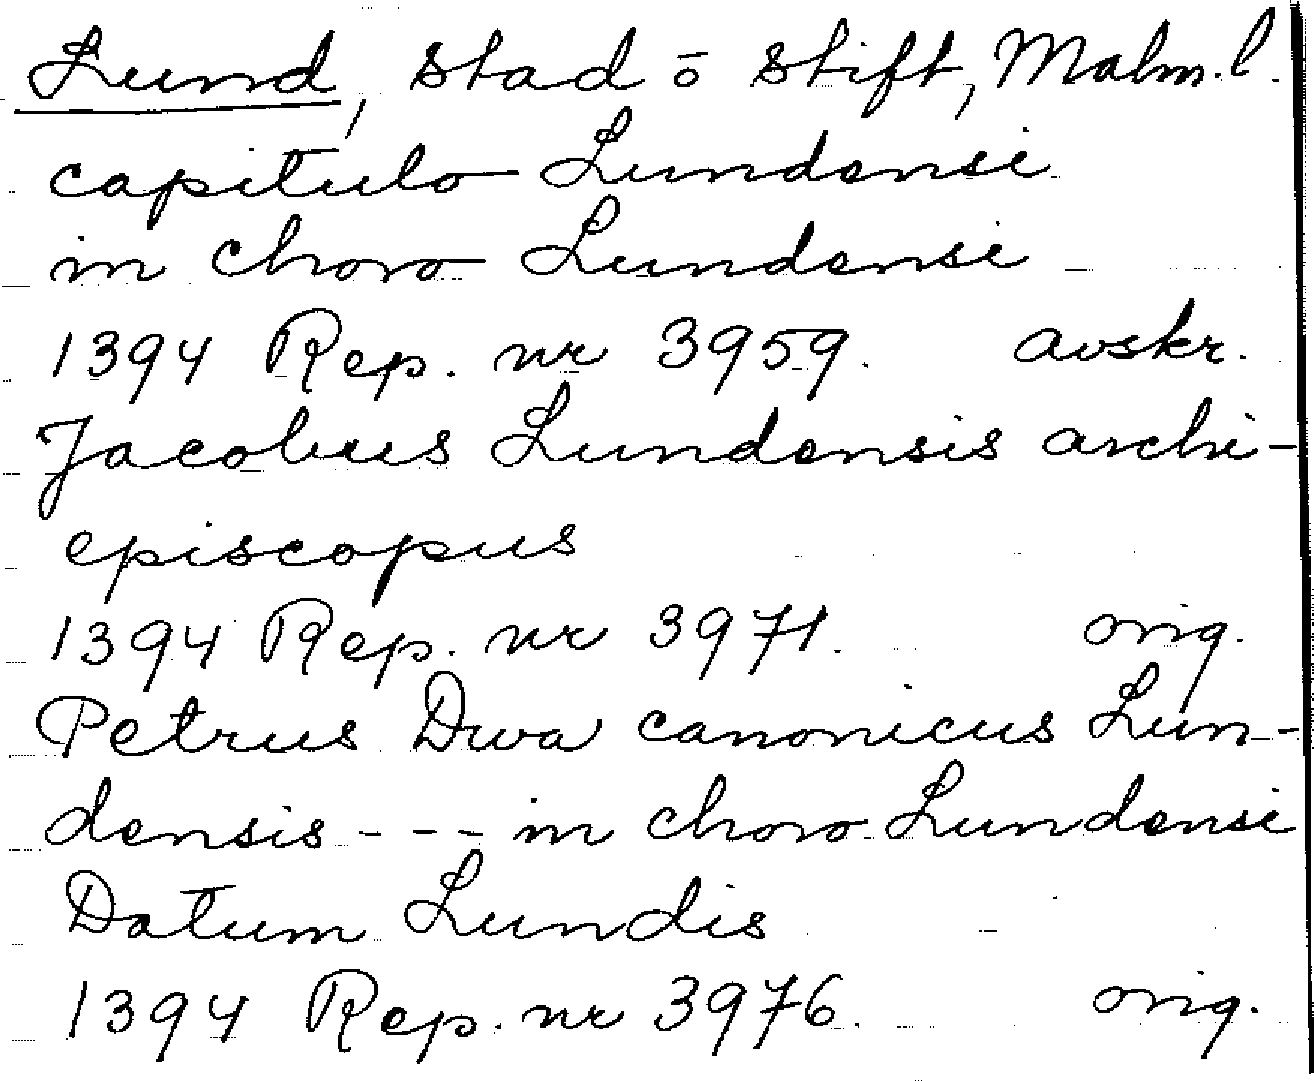 Lund, stad ō stift, Malm. l.
capitulo Lundensi
in choro Lundensi
1394 Rep. nr 3959. avskr.
Jacobus Lundensis archi-
episcopus
1394 Rep. nr 3971. orig.
Petrus Dwa canonicus Lun-
densis - - - in choro Lundensi
Datum Lundis
1394 Rep. nr 3976. orig.